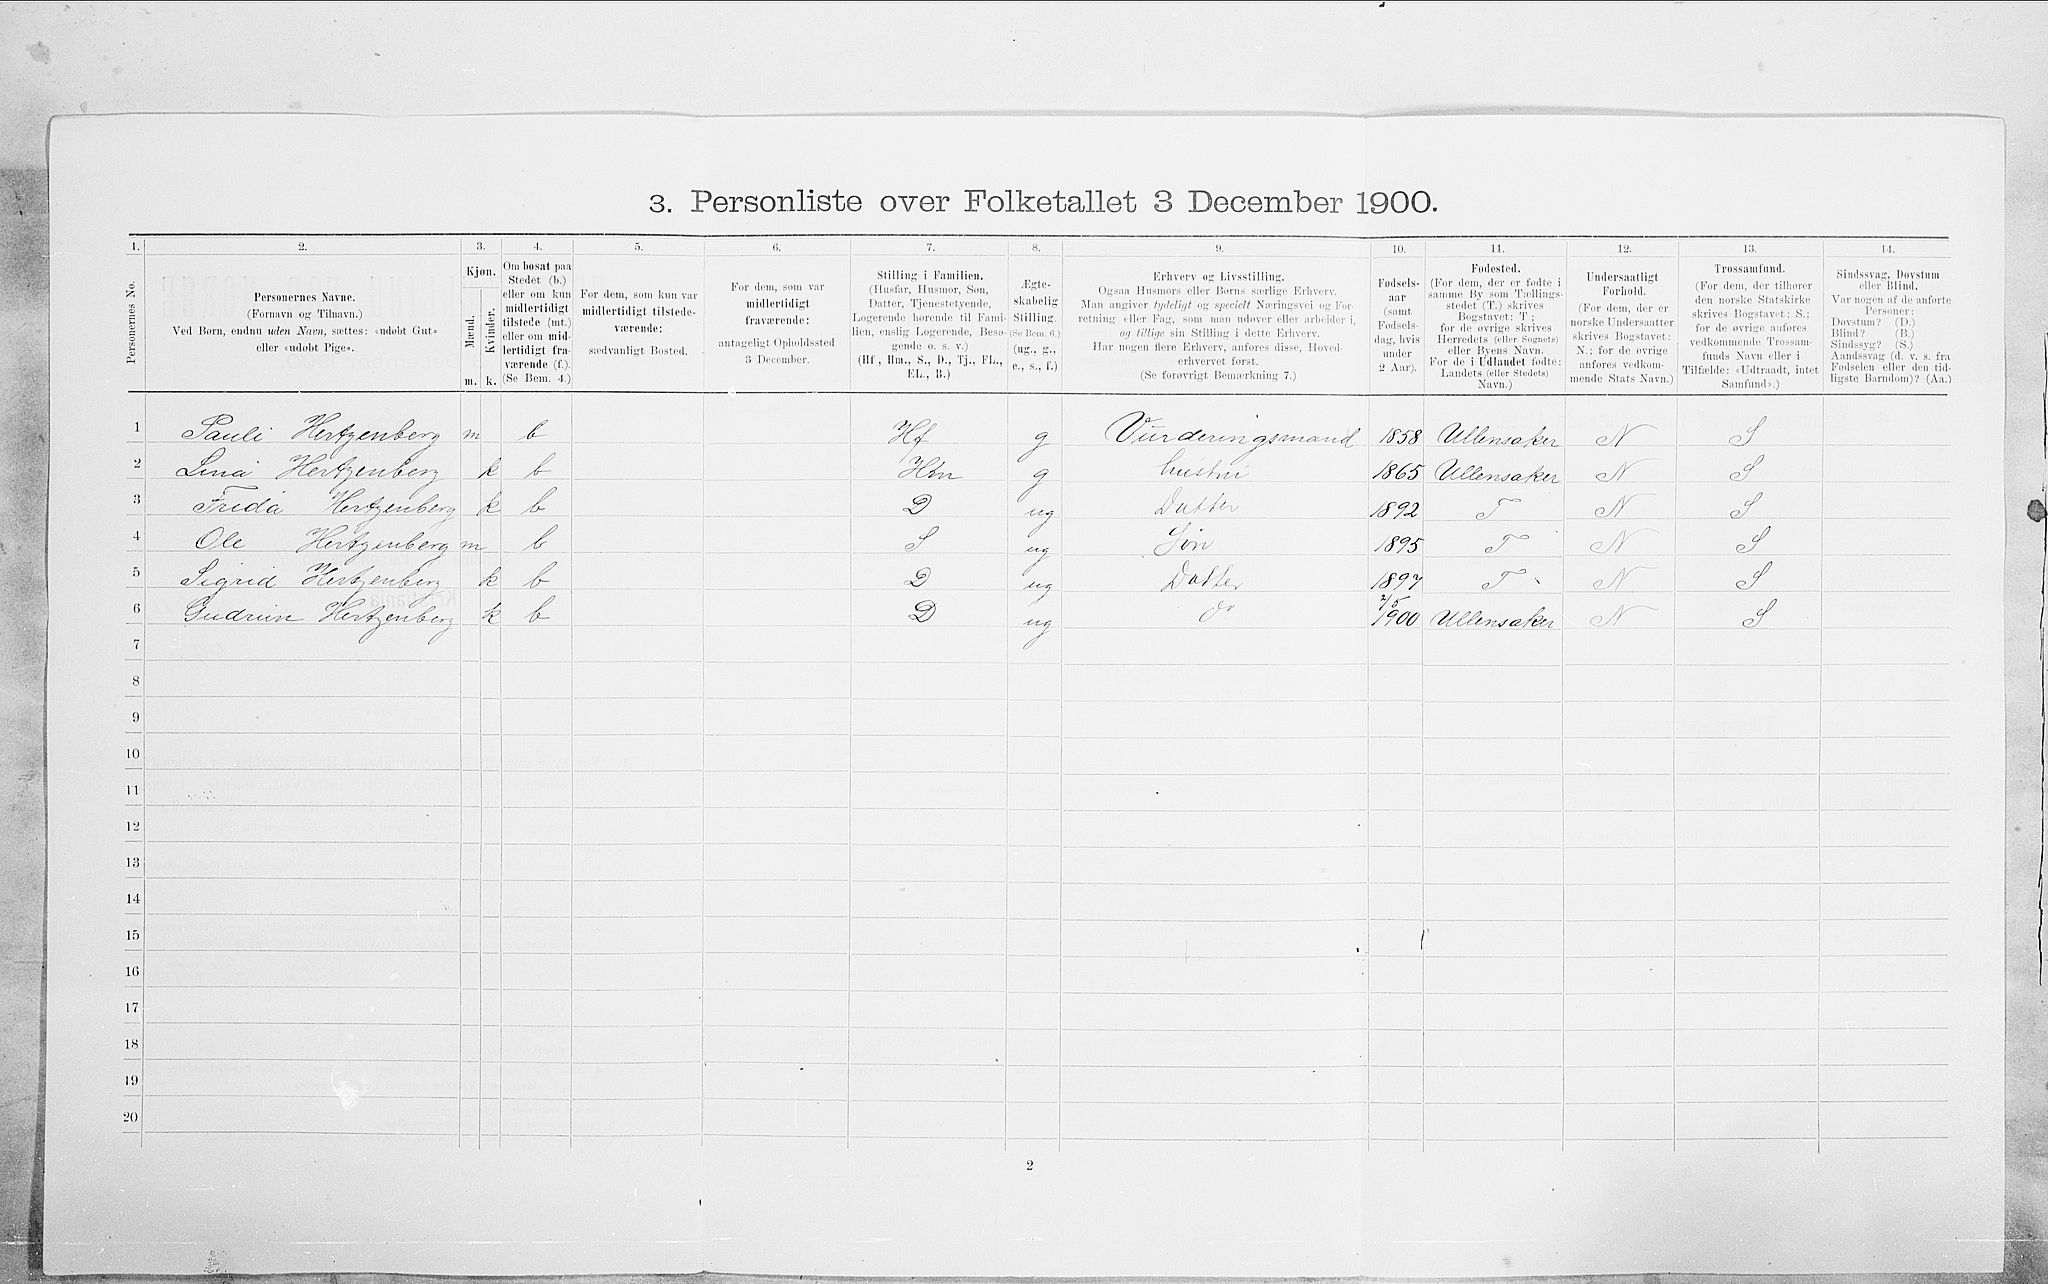 3. Personliste over Folketallet 3 December 1900.
1. 2. 3. 4. 5. 6. 7. 8. 9. 10. 11. 12. 13. 14.
Personernes No.
Personernes Navne.
(Fornavn og Tilnavn.)
Ved Børn, endnu uden Navn, sættes: «udøbt Gut»
eller «udøbt Pige».
Kjøn.
Mænd.
Kvinder.
m. k.
Om bosat paa
Stedet (b.)
eller om kun
midlertidigt
tilstede (mt.)
eller om mid-
lertidigt fra-
værende (f.).
(Se Bem. 4.)
For dem, som kun var
midlertidigt tilstede-
værende:
sædvanligt Bosted.
For dem, som var
midlertidigt
fraværende:
antageligt Opholdssted
3 December.
Stilling i Familien.
(Husfar, Husmor, Søn,
Datter, Tjenestetyende,
Logerende hørende til Fami-
lien, enslig Logerende, Besø-
gende o. s. v.)
(Hf, Hm., S., D., Tj., FL.,
EL., B.)
Ægte-
skabelig
Stilling.
(Se Bem. 6.)
(ug., g.,
e., s., f.)
Erhverv og Livsstilling.
Ogsaa Husmors eller Børns særlige Erhverv.
Man angiver tydeligt og specielt Næringsvei og For-
retning eller Fag, som man udøver eller arbeider i,
og tillige sin Stilling i dette Erhverv.
Har nogen flere Erhverv, anføres disse, Hoved-
erhvervet først.
(Se forøvrigt Bemærkning 7.)
Fødsels-
aar
(samt
Fødsels-
dag, hvis
under
2 Aar).
Fødested.
(For dem, der er fødte i
samme By som Tællings-
stedet (T.) skrives
Bogstavet: T ;
for de øvrige skrives
Herredets (eller Sognets)
eller Byens Navn.
For de i Udlandet fødte:
Landets (eller Stedets)
Navn.)
Undersaatligt
Forhold.
(For dem, der er
norske Undersaatter
skrives Bogstavet:
N.; for de øvrige
anføres vedkom-
mende Stats Navn.)
Trossamfund.
(For dem, der tilhører
den norske Statskirke
skrives Bogstavet: S.;
for de øvrige anføres
vedkommende Trossam-
funds Navn eller i
Tilfælde: «Udtraadt, intet
Samfund».)
Sindssvag, Døvstum
eller Blind.
Var nogen af de anførte
Personer:
Døvstum? (D.)
Blind? (B.)
Sindssyg? (S.)
Aandssvag (d. v. s. fra
Fødselen eller den tid-
ligste Barndom)? (Aa.)
1 Pauli Hertzenberg m b Hf g Vurderingsmand 1858 Ullensaker N S
2 Lina Hertzenberg k b Hm g hustru 1865 Ullensaker N S
3 Frida Hertzenberg k b D ug Datter 1892 T N S
4 Ole Hertzenberg m b S ug Søn 1895 T N S
5 Sigrid Hertzenberg k b D ug Datter 1897 T N S
6 Gudrun Hertzenberg k b D ug do 2/5 1900 Ullensaker N S
7
8
9
10
11
12
13
14
15
16
17
18
19
20
2